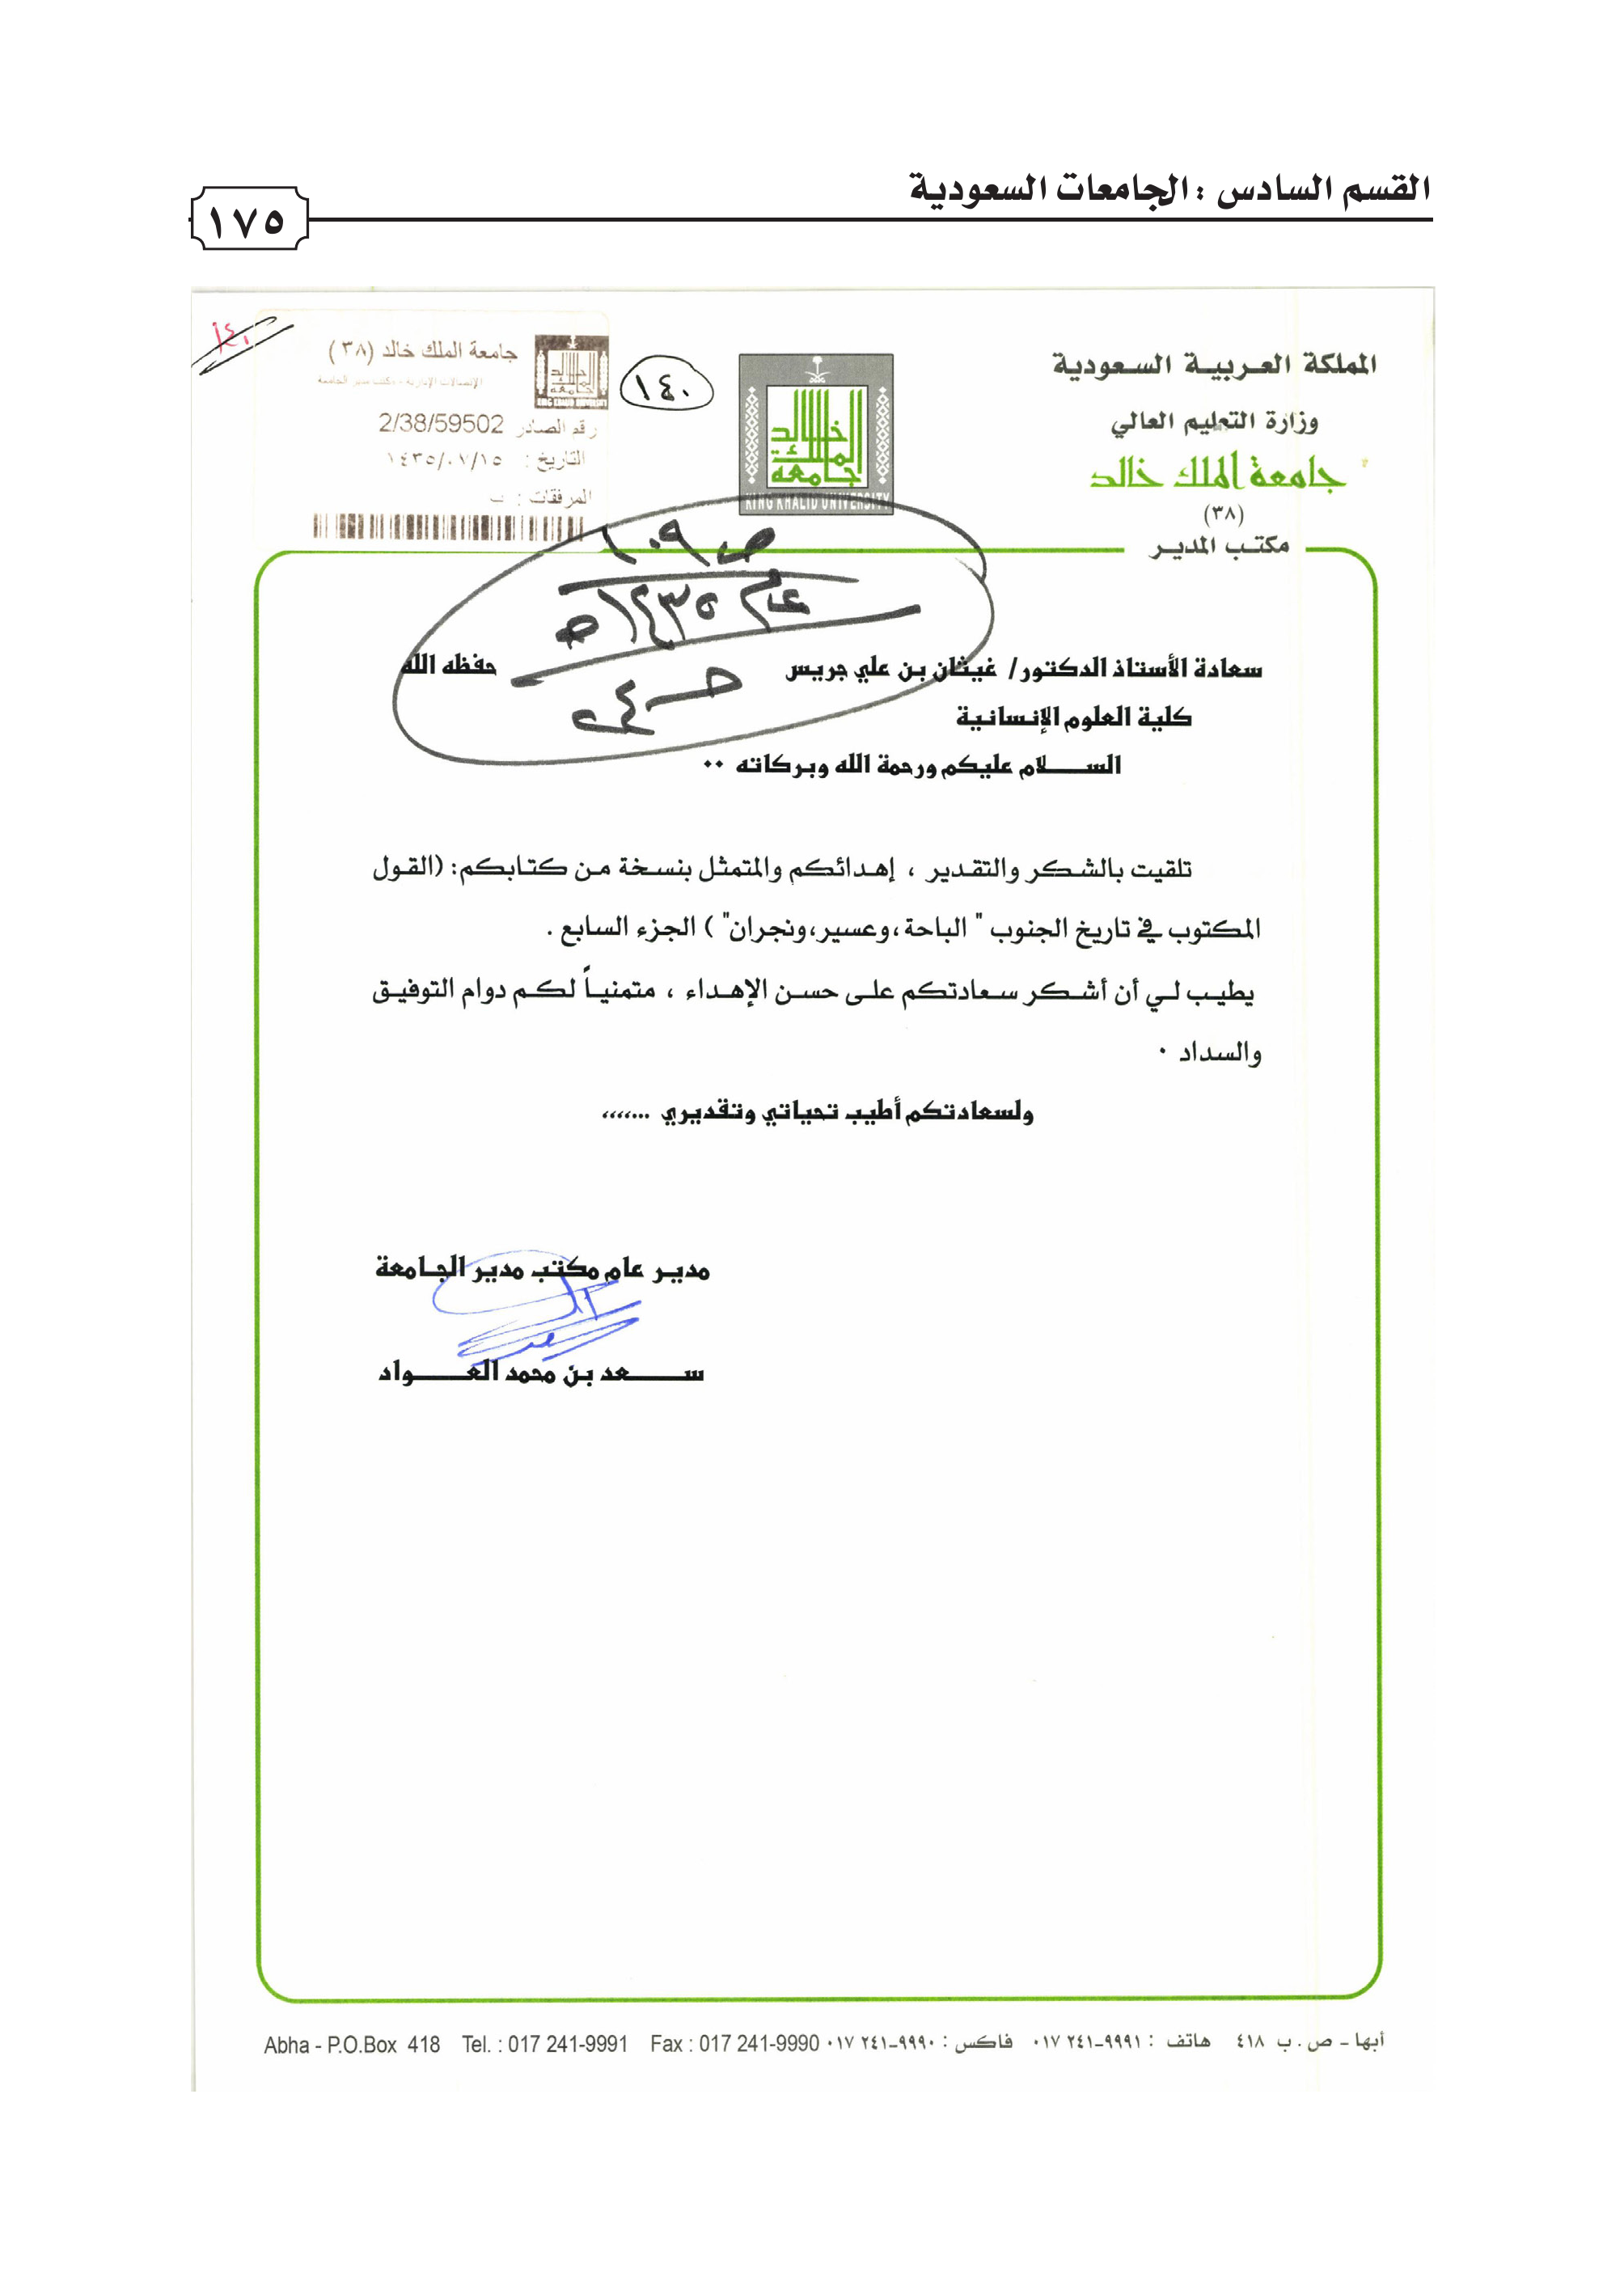 القسم السادس : الجامعات السعودية
١٧٥
المملكة العربية السعودية
وزارة التعليم العالي
جامعة الملك خالد
(٣٨)
مكتب المدير
جامعة الملك خالد
KING KHALID UNIVERSITY
١٤٠
جامعة الملك خالد (٣٨)
الإتصالات الإدارية - مكتب مدير الجامعة
رقم الصادر 2/38/59502
التاريخ : ١٤٣٥/٠٧/١٥
المرفقات : ب
١٤٠
ص ١٠٩
عام ١٤٣٥هـ
سعادة الأستاذ الدكتور/ غيثان بن علي جريس حفظه الله
كلية العلوم الإنسانية
السلام عليكم ورحمة الله وبركاته ٠٠
تلقيت بالشكر والتقدير ، إهدائكم والمتمثل بنسخة من كتابكم: (القول
المكتوب في تاريخ الجنوب " الباحة ،وعسير،ونجران" ) الجزء السابع .
يطيب لي أن أشكر سعادتكم على حسن الإهداء ، متمنياً لكم دوام التوفيق
والسداد ٠
ولسعادتكم أطيب تحياتي وتقديري ...،،،،
مدير عام مكتب مدير الجامعة
سعد بن محمد العواد
أبها - ص . ب ٤١٨ هاتف : ٩٩٩١-٢٤١ ٠١٧ فاكس : ٩٩٩٠-٢٤١ ٠١٧
Abha - P.O.Box 418 Tel. : 017 241-9991 Fax : 017 241-9990